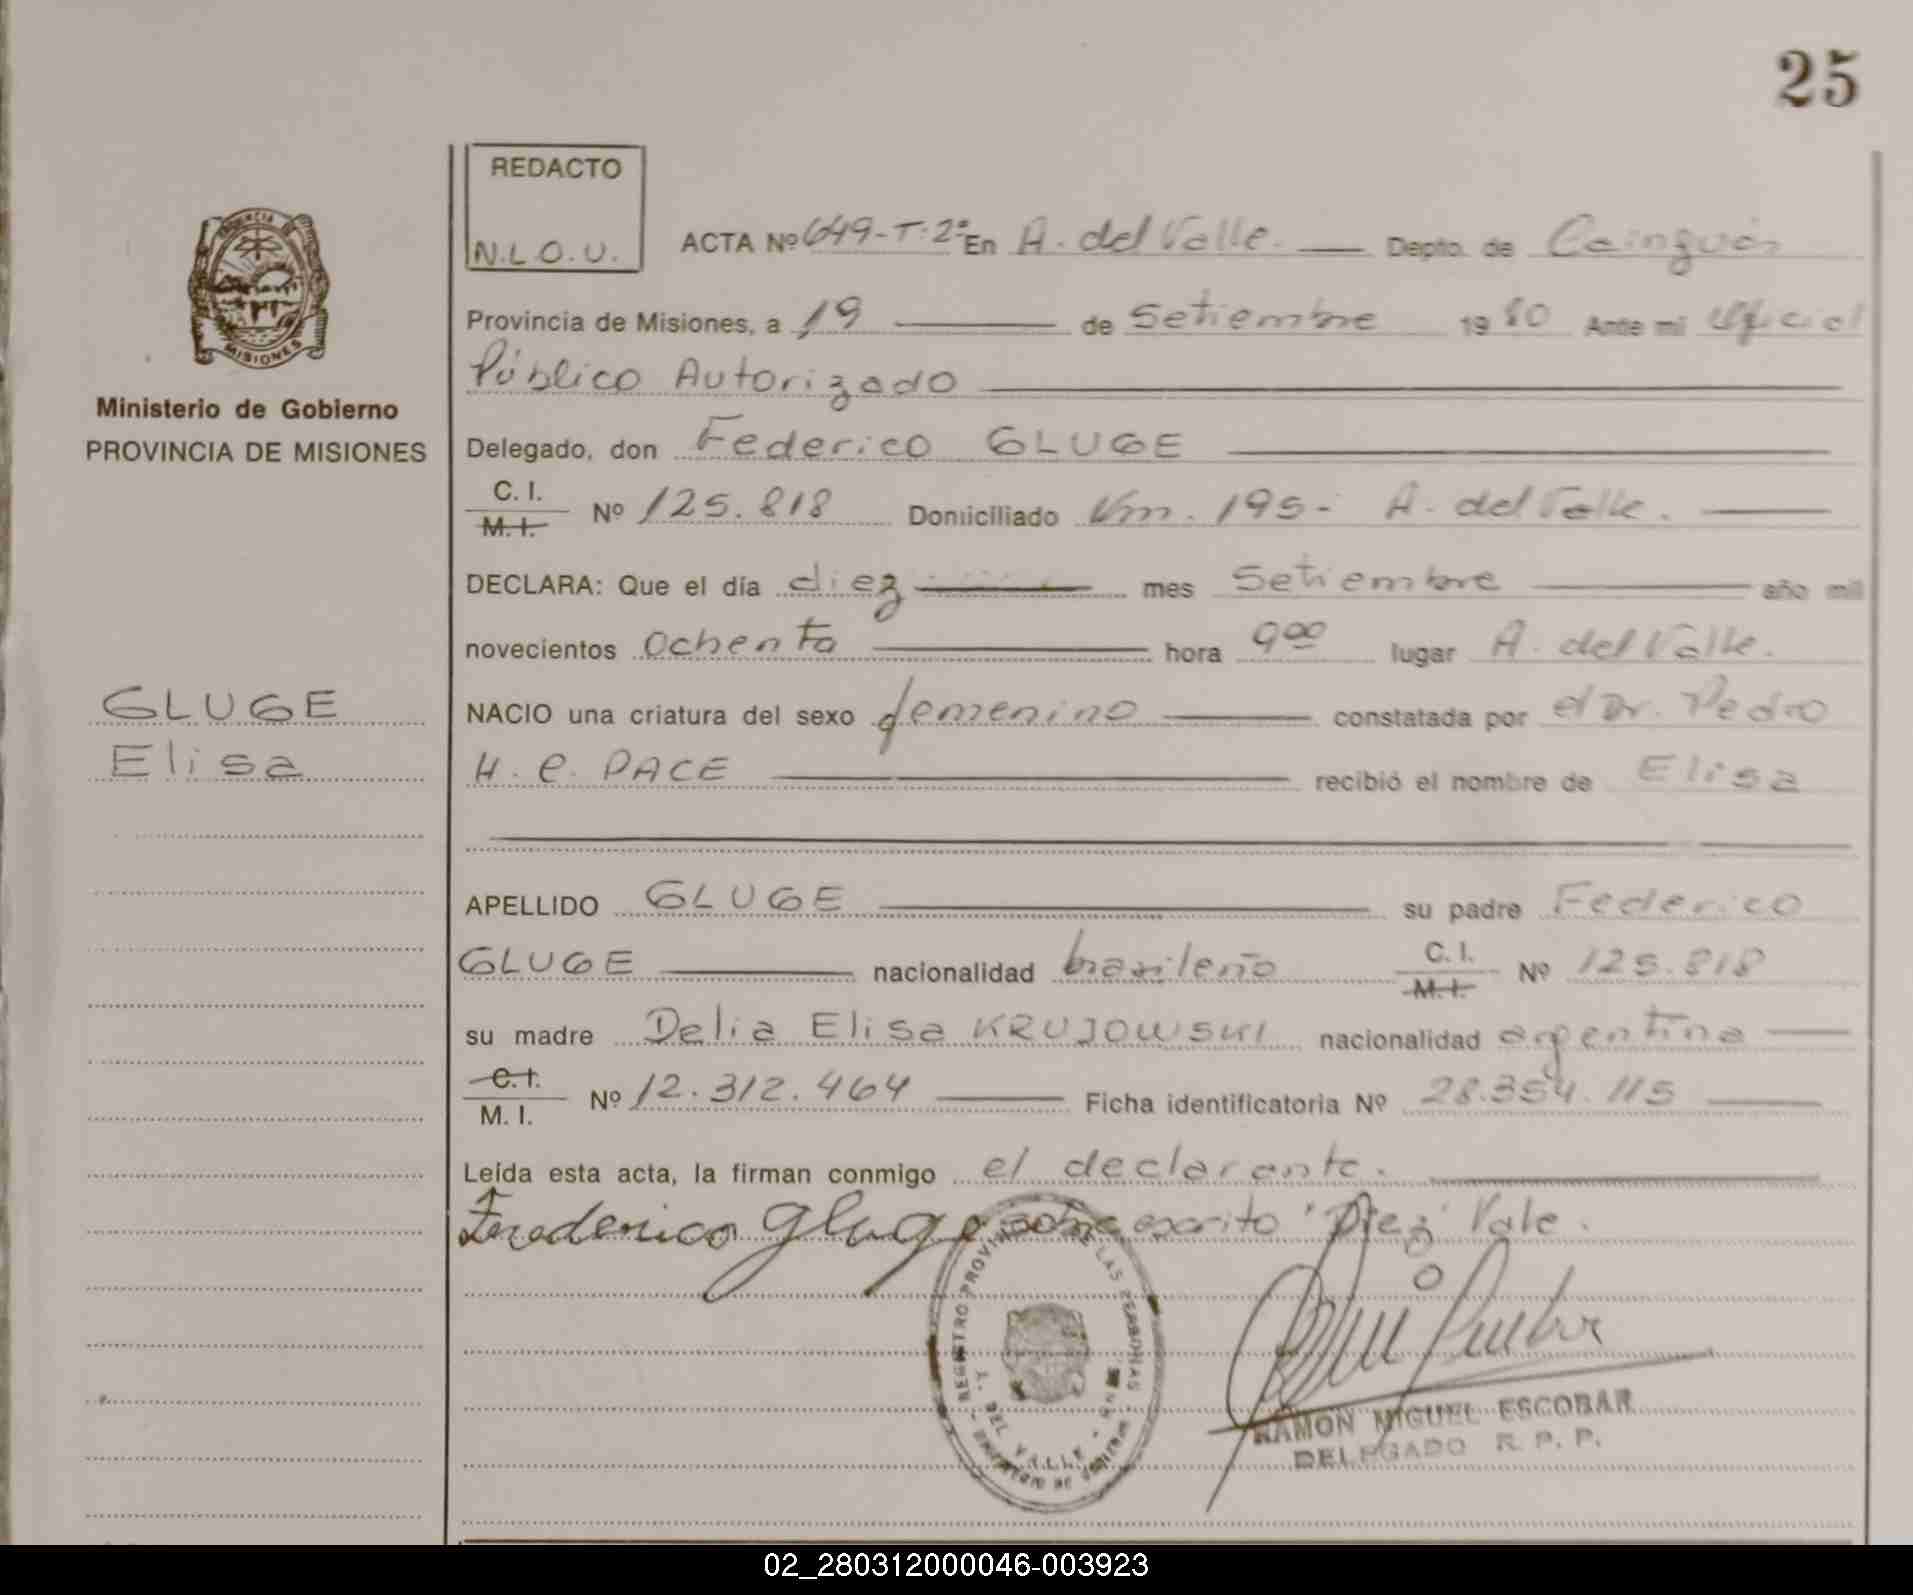 25
REDACTO
N.L.O.U.
ACTA Nº 649-T:2º En A. del Valle. Depto. de Cainguás
Provincia de Misiones, a 19 de Setiembre 1980 Ante mi Oficial
Público Autorizado
Delegado, don Federico GLUGE
C. I.
M. I. Nº 125.818 Domiciliado Km. 195- A. del Valle.
DECLARA: Que el día diez mes Setiembre año mil
novecientos ochenta hora 9⁰⁰ lugar A. del Valle.
NACIO una criatura del sexo femenino constatada por el Dr. Pedro
H. C. PACE recibió el nombre de Elisa
APELLIDO GLUGE su padre Federico
GLUGE nacionalidad brasileño C. I.
M. I. Nº 125.818
su madre Delia Elisa KRUJOWSKI nacionalidad argentina
C. I.
M. I. Nº 12.312.464 Ficha identificatoria Nº 28.354.115
Leída esta acta, la firman conmigo el declarante.
Frederico Gluge sobre escrito "Diez" Vale.
REGISTRO PROVINCIAL DE LAS PERSONAS
A. DEL VALLE
RAMON MIGUEL ESCOBAR
DELEGADO R. P. P.
PROVINCIA DE
MISIONES
Ministerio de Gobierno
PROVINCIA DE MISIONES
GLUGE
Elisa
02_280312000046-003923